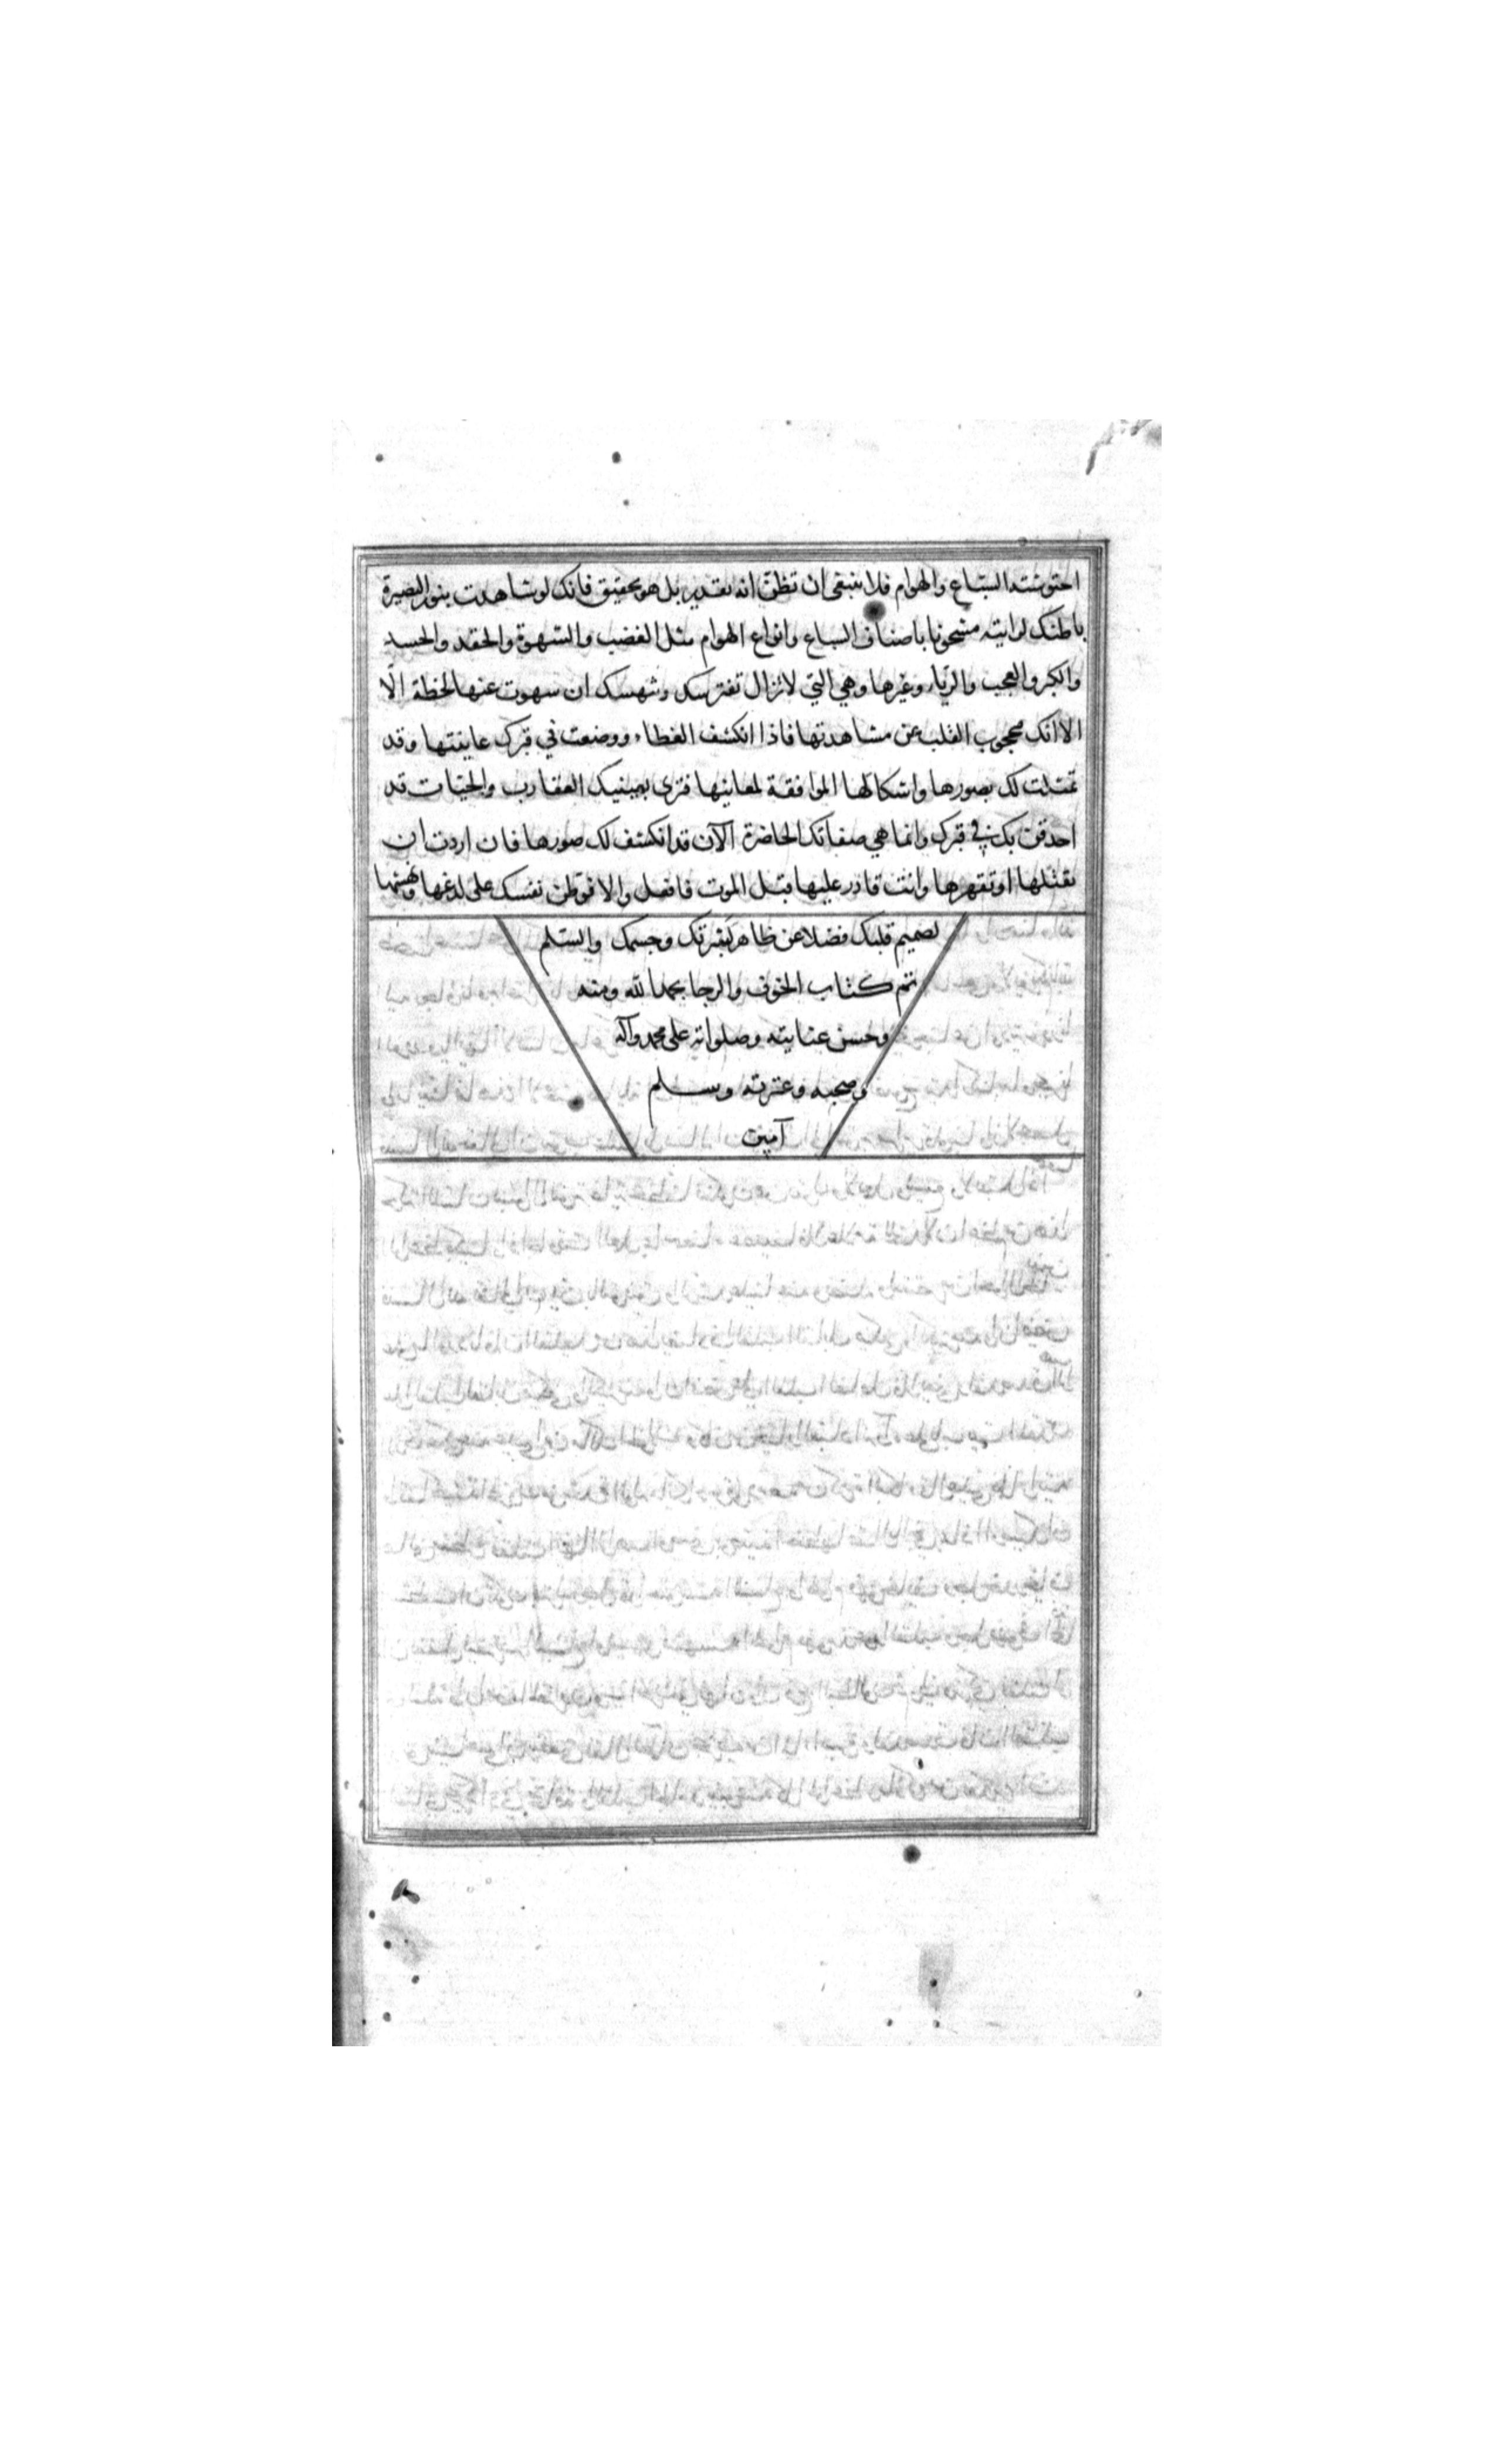 احتوشته السباع والهوام فلا ينبغى ان تظن انه تقدير بل هو تحقيق فانك لو شاهدت بنور البصيرة
باطنك لرايته مشحونا باصناف السباع وانواع الهوام مثل الغضب والشهوة والحقد والحسد
والكبر والعجب والرياء وغيرها وهي التي لا تزال تفترسك وتنهشك ان سهوت عنها لحظة الّا
الا انك محجوب القلب عن مشاهدتها فاذا انكشف الغطاء ووضعت في قبرك عاينتها وقد
تمثلت لك بصورها واشكالها الموافقة لمعانيها فترى بعينيك العقارب والحيّات قد
احدقن بك في قبرك وانما هي صفاتك الحاضرة الآن قد انكشف لك صورها فان اردت ان
تقتلها او تقهرها وانت قادر عليها قبل الموت فافعل والا فوطن نفسك على لدغها ونهشها
لصميم قلبك فضلا عن ظاهر بَشَرتك وجسمك والسّلم
تم كتاب الخوف والرجا بحمد الله ومنه
وحسن عنايته وصلواته على محمد وآله
وصحبه وعترته وسلم
آمين